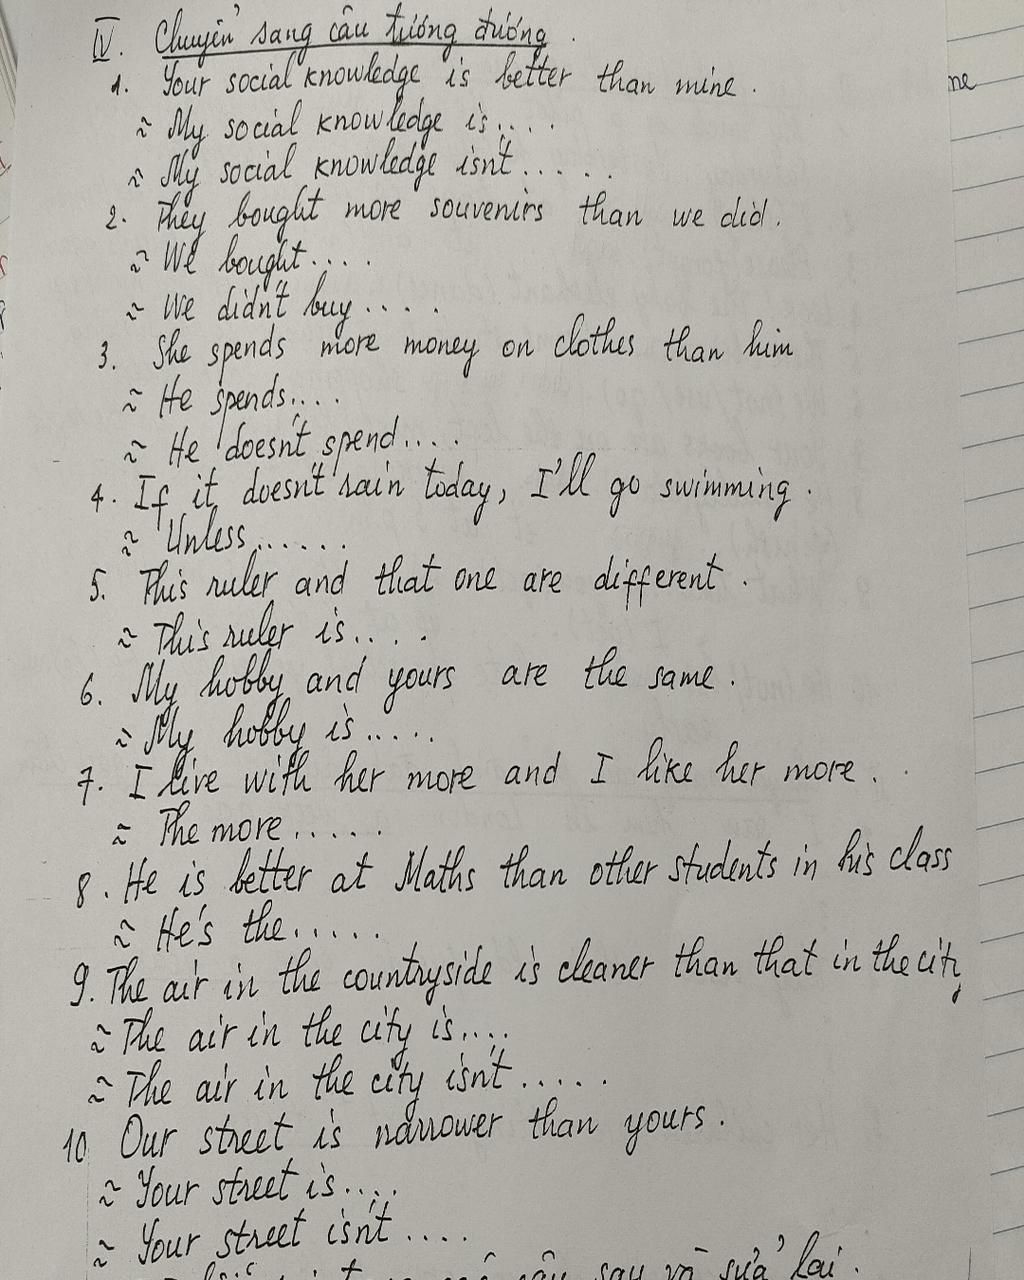 IV. Chuyển sang câu tương đương.
1. Your social knowledge is better than mine.
≈ My social knowledge is....
≈ My social knowledge isn't.....
2. They bought more souvenirs than we did.
≈ We bought....
≈ We didn't buy....
3. She spends more money on clothes than him
≈ He spends....
≈ He doesn't spend....
4. If it doesn't rain today, I'll go swimming.
≈ Unless......
5. This ruler and that one are different.
≈ This ruler is....
6. My hobby and yours are the same.
≈ My hobby is.....
7. I live with her more and I like her more.
≈ The more.....
8. He is better at Maths than other students in his class
≈ He's the.....
9. The air in the countryside is cleaner than that in the city
≈ The air in the city is....
≈ The air in the city isn't.....
10 Our street is narrower than yours.
≈ Your street is....
≈ Your street isn't....
câu sau và sửa lại.